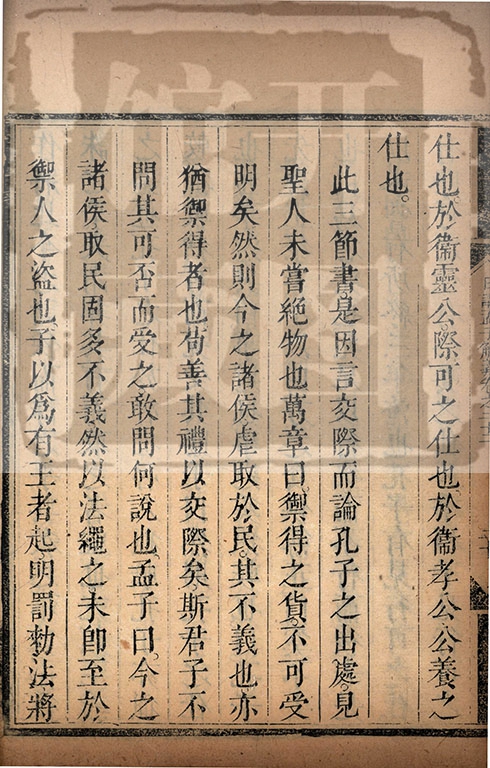 仕也於衞靈公際可之仕也於衞孝公公養之
仕也。
此三節書是因言交際而論孔子之出處見
聖人未嘗絶物也萬章曰禦得之貨不可受
明矣然則今之諸侯虐取於民其不義也亦
猶禦得者也苟善其禮以交際矣斯君子不
問其可否而受之敢問何說也孟子曰今之
諸侯取民固多不義然以法繩之未卽至於
禦人之盜也子以爲有王者起明罰勅法將